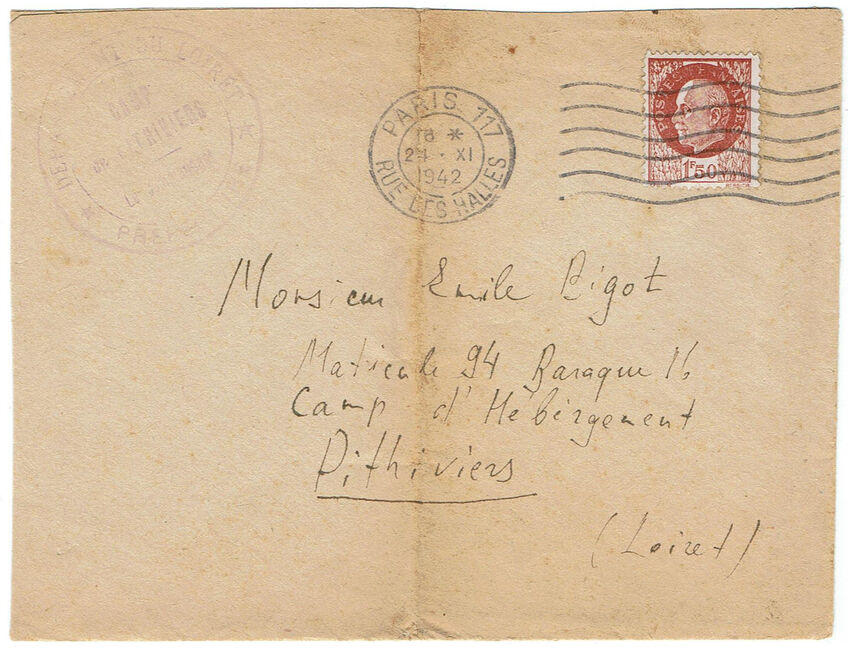 DU LOIRET
CAMP
DE PITHIVIERS
PARIS 117
18 *
XI
1942
RUE DES HALLES
POSTES FRANCAISES
1F50
Monsieur Emile Bigot
Maticule 94 Baraque 16
Camp d'Hébèrgement
Pithiviers
(Loiret)